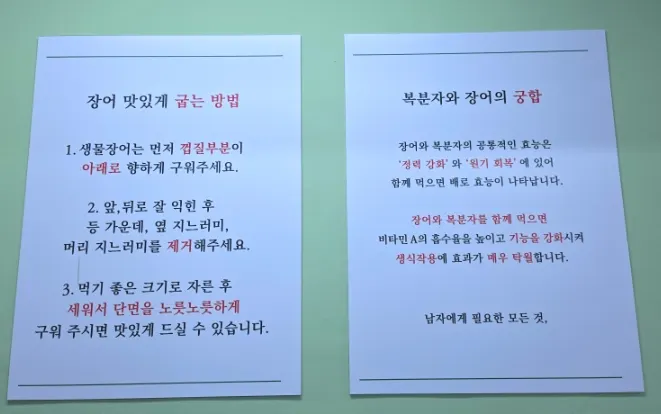 장어 맛있게 굽는 방법
1. 생물장어는 먼저 껍질부분이
아래로 향하게 구워주세요.
2. 앞,뒤로 잘 익힌 후
등 가운데, 옆 지느러미,
머리 지느러미를 제거해주세요.
3. 먹기 좋은 크기로 자른 후
세워서 단면을 노릇노릇하게
구워 주시면 맛있게 드실 수 있습니다.
복분자와 장어의 궁합
장어와 복분자의 공통적인 효능은
'정력 강화' 와 '원기 회복' 에 있어
함께 먹으면 배로 효능이 나타납니다.
장어와 복분자를 함께 먹으면
비타민 A의 흡수율을 높이고 기능을 강화시켜
생식작용에 효과가 매우 탁월합니다.
남자에게 필요한 모든 것,